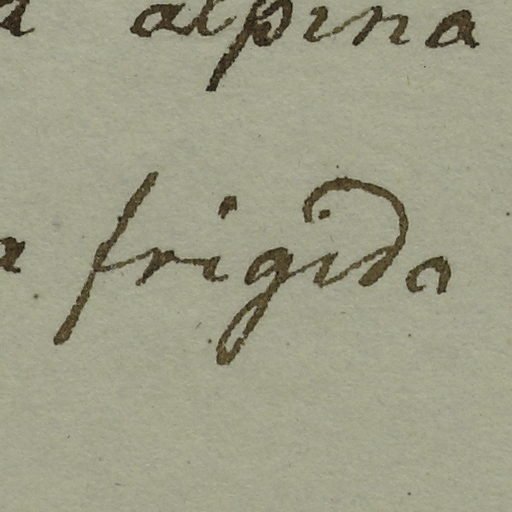 a alpina
a frigida